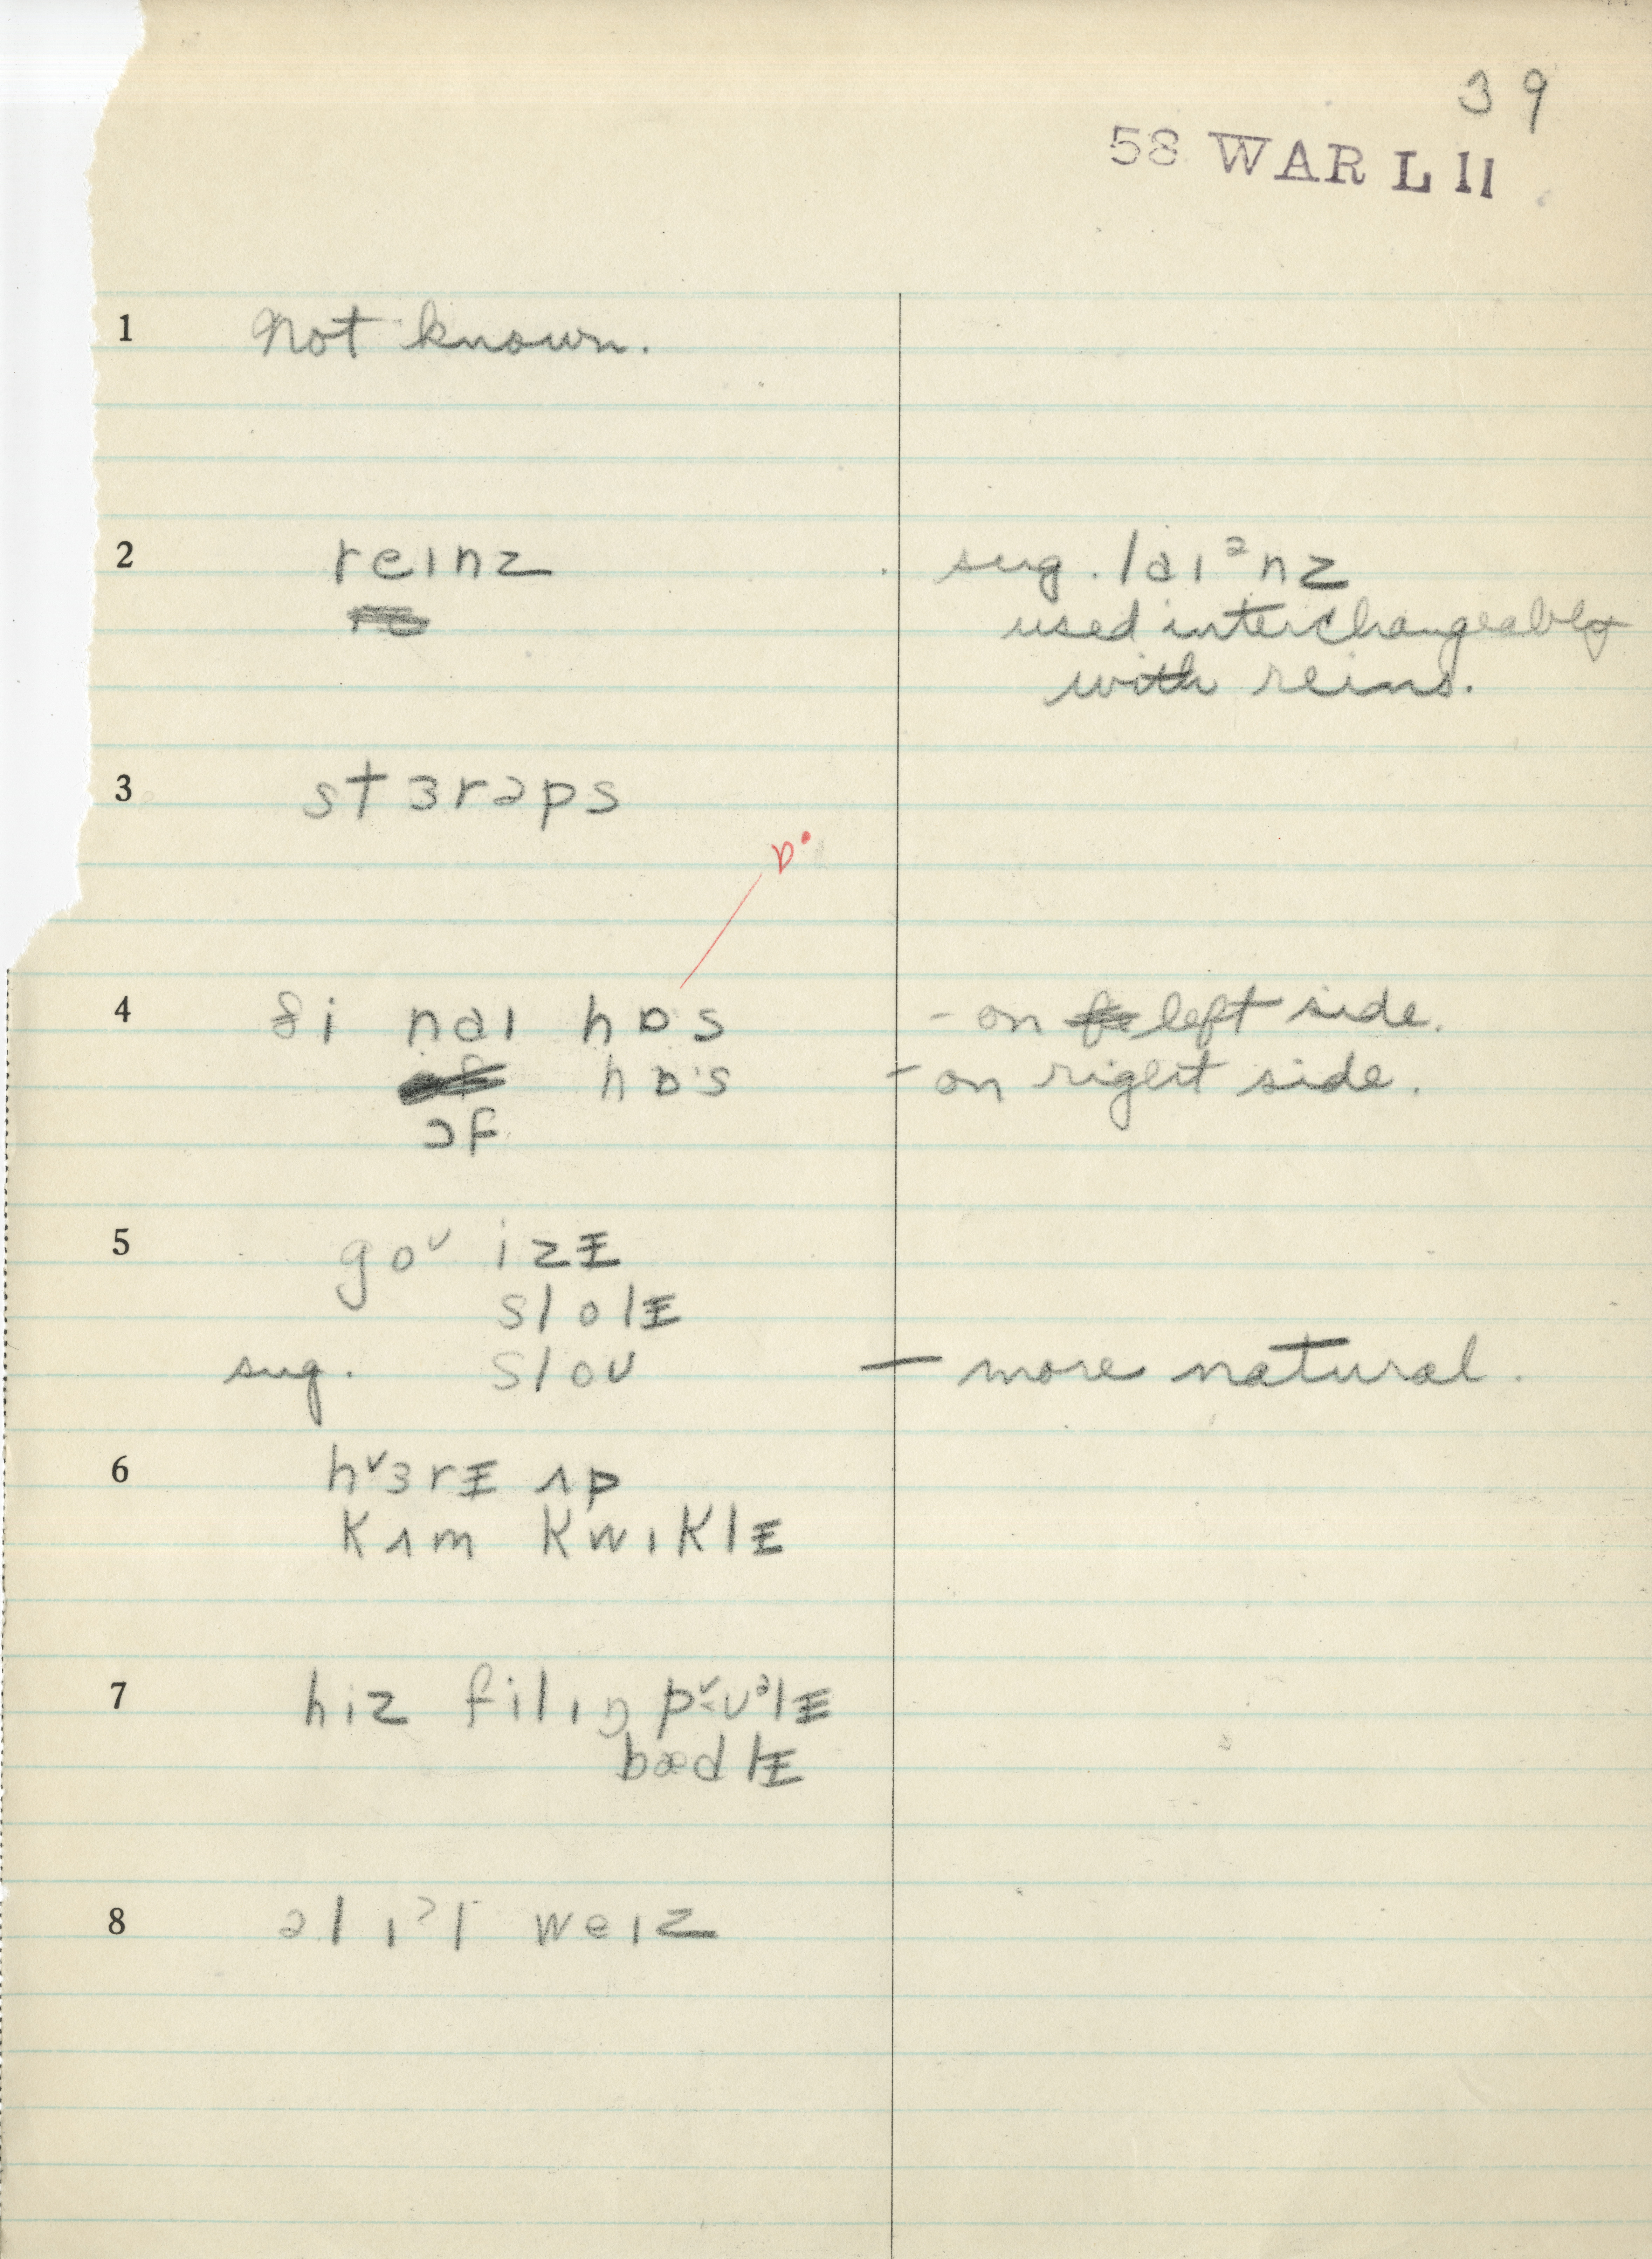 39
58 WAR L 11
1 Not known.
2 reɪnz sug. laɪᵊnz
used interchangeably
with reins.
3 stɜrəps
ɒ·
4 ði naɪ hɒs - on left side.
hɒ·s - on right side.
ɔf
5 goᶷ izɪ̵
slolɪ̵
sug. sloʊ — more natural.
6 hᵛɜrɪ̵ ʌp
kʌm kwɪklɪ̵
7 hiz filɪŋ
bædlɪ̵
8 weɪz